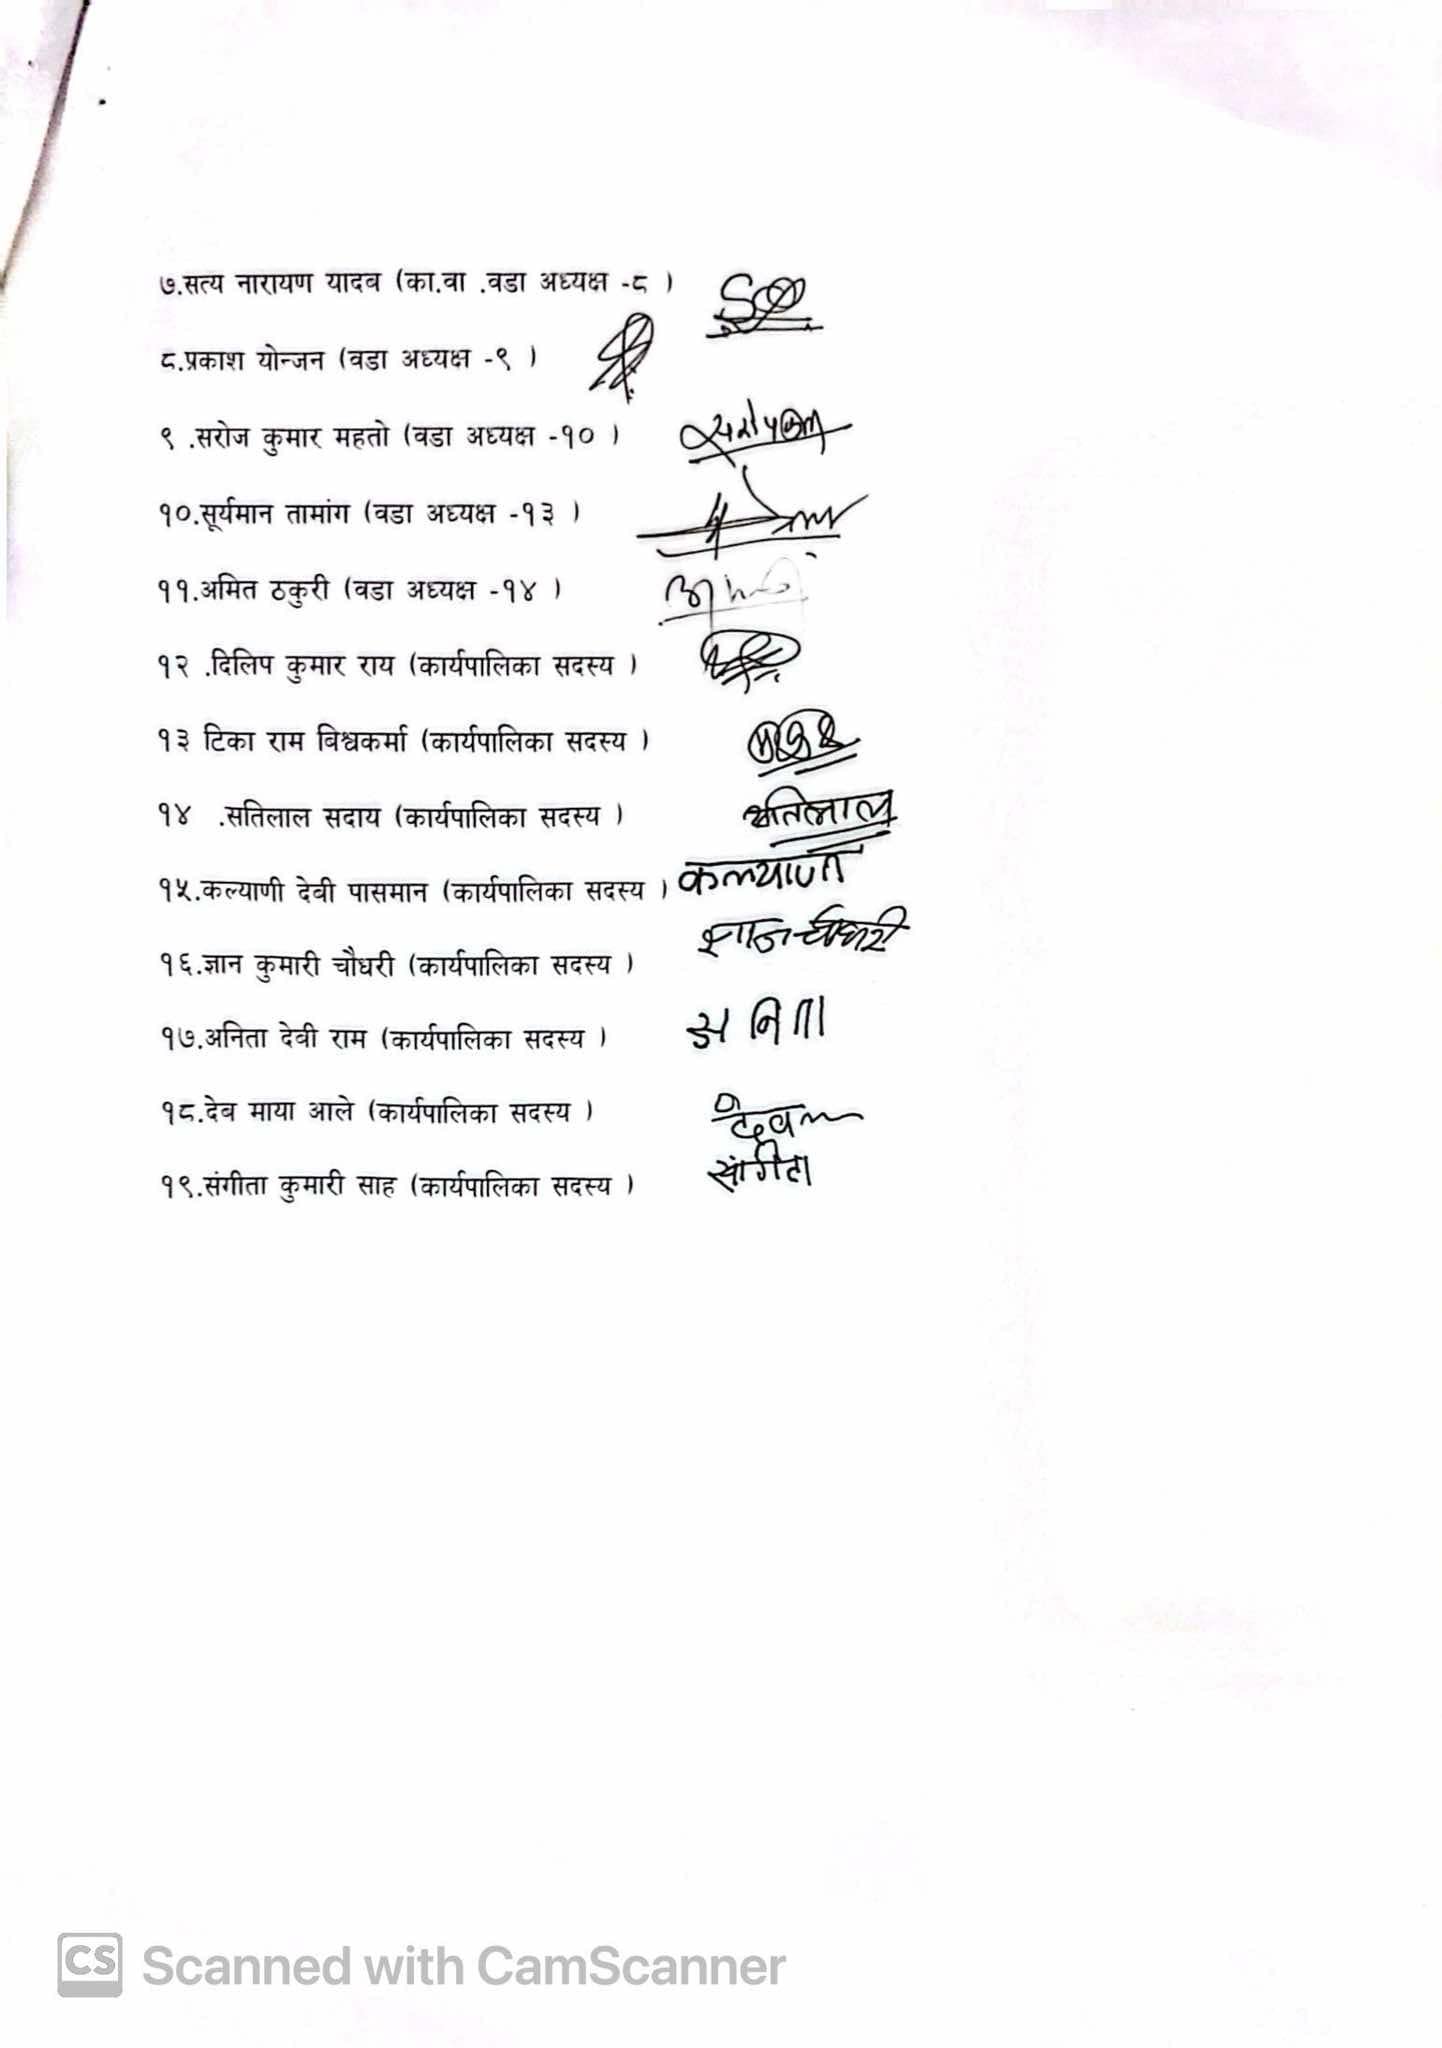 ७.सत्य नारायण यादव (का.वा .वडा अध्यक्ष -८ )
८.प्रकाश योन्जन (वडा अध्यक्ष -९ )
९ .सरोज कुमार महतो (वडा अध्यक्ष -१० )
१०.सूर्यमान तामांग (वडा अध्यक्ष -१३ )
११.अमित ठकुरी (वडा अध्यक्ष -१४ )
१२ .दिलिप कुमार राय (कार्यपालिका सदस्य )
१३ टिका राम बिश्वकर्मा (कार्यपालिका सदस्य )
१४ .सतिलाल सदाय (कार्यपालिका सदस्य ) सतिलाल
१५.कल्याणी देवी पासमान (कार्यपालिका सदस्य ) कल्याणी
१६.ज्ञान कुमारी चौधरी (कार्यपालिका सदस्य ) चौधरी
१७.अनिता देवी राम (कार्यपालिका सदस्य ) अनिता
१८.देब माया आले (कार्यपालिका सदस्य )
१९.संगीता कुमारी साह (कार्यपालिका सदस्य ) संगीता
CS Scanned with CamScanner